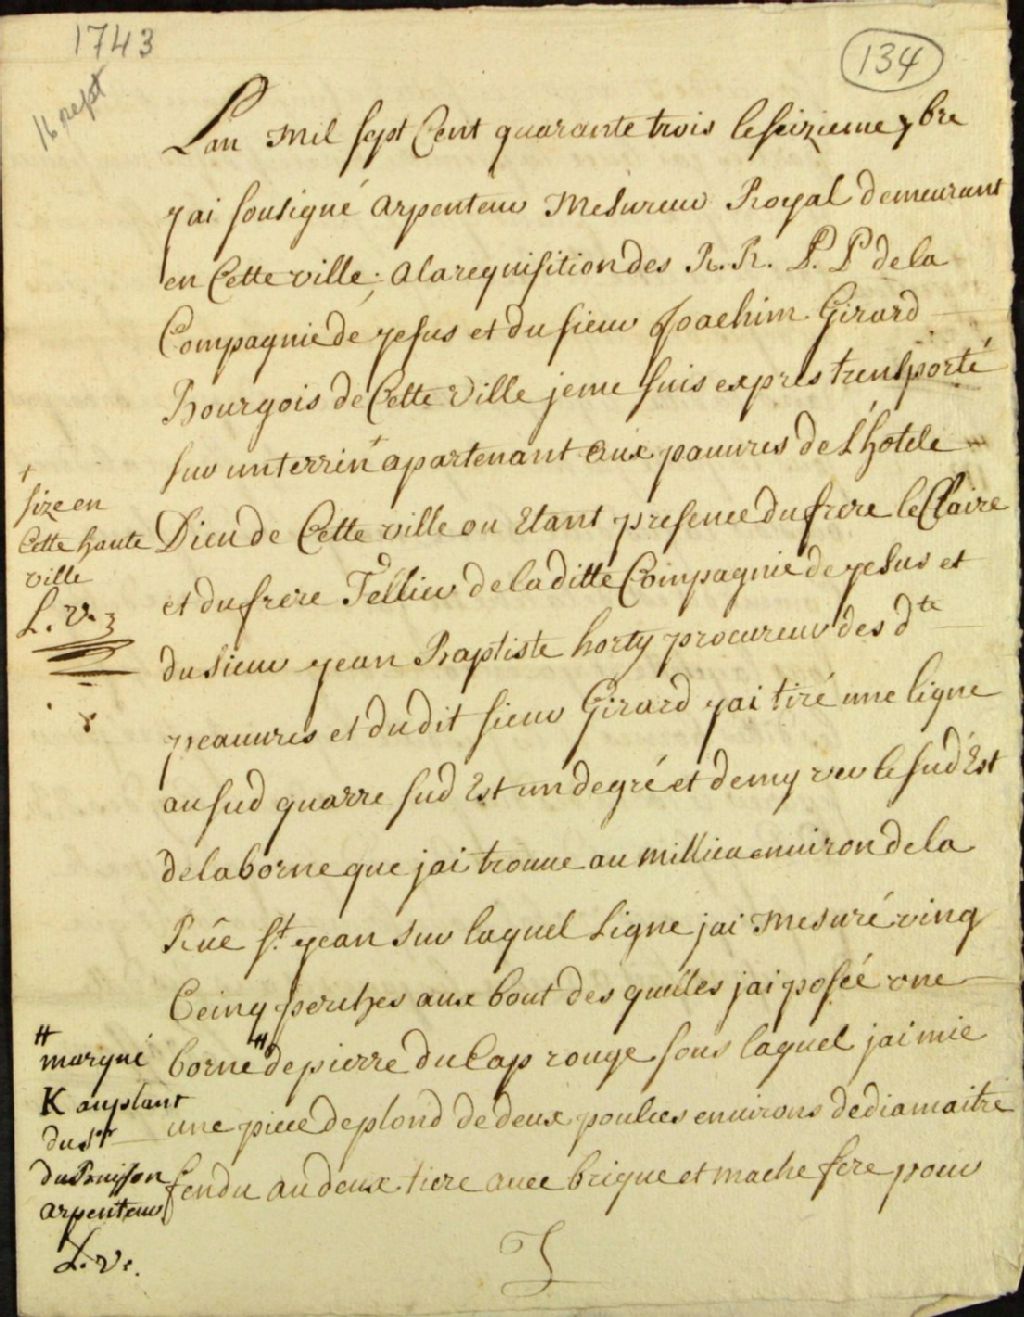 1743
16 sept
134
Lan Mil sept Cent quarante trois le seizieme 7bre
jai sousigné arpenteur Mesureur Royal demeurant
en Cette ville ; a la requisition des R. R. P. P de la
Compagnie de jesus et du sieur Joachim Girard
Bourgois de Cette Ville je me suis expres transporté
sur un terrin + apartenant aux pauvres de L'hotele
Dieu de Cette ville ou Etant presence du frere le Claire
et du frere Tellier de la ditte Compagnie de jesus et
du sieur jean Baptiste horty procureur des dte
peauvres et du dit sieur Girard jai tiré une ligne
au sud quarre sud Est un degré et demy ver le sud Est
de la borne que jai trouve au millieu environ de la
Rüe st. jean sur laquel Ligne jai Mesuré ving
Ceinq perches aux bout des quelles jai posée une
borne # de pierre du Cap rouge sous laquel jai mie
une piece de plond de deux poulces environs de diamaitre
fendu au deux tiere avec brique et mache fere pour
+
size en
Cette haute
ville
L. v.
#
marqué
K au plant
du sr
du Buisson
arpenteur
L. v.